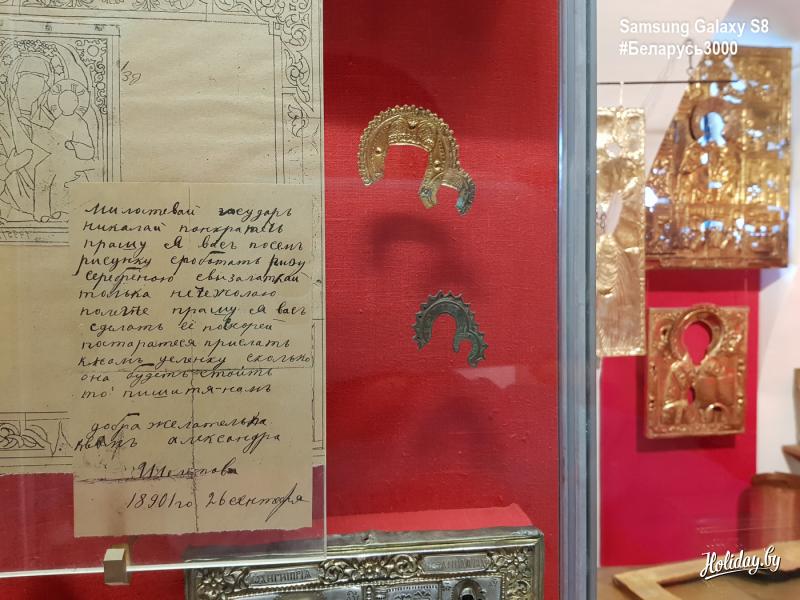 Samsung Galaxy S8
#Беларусь3000
милостевай государь
николай понкратечь
прашу я васъ посемъ
рисунку сработать ризу
серебреною
толька не тежолаю
полегче прашу я васъ
сделать её поскорей
постаратеся прислать
кнамъ уценку сколько
она будетъ стоить
то пишитя-намъ
добра желательна
александра
18901го 26 сентебря
Holiday.by